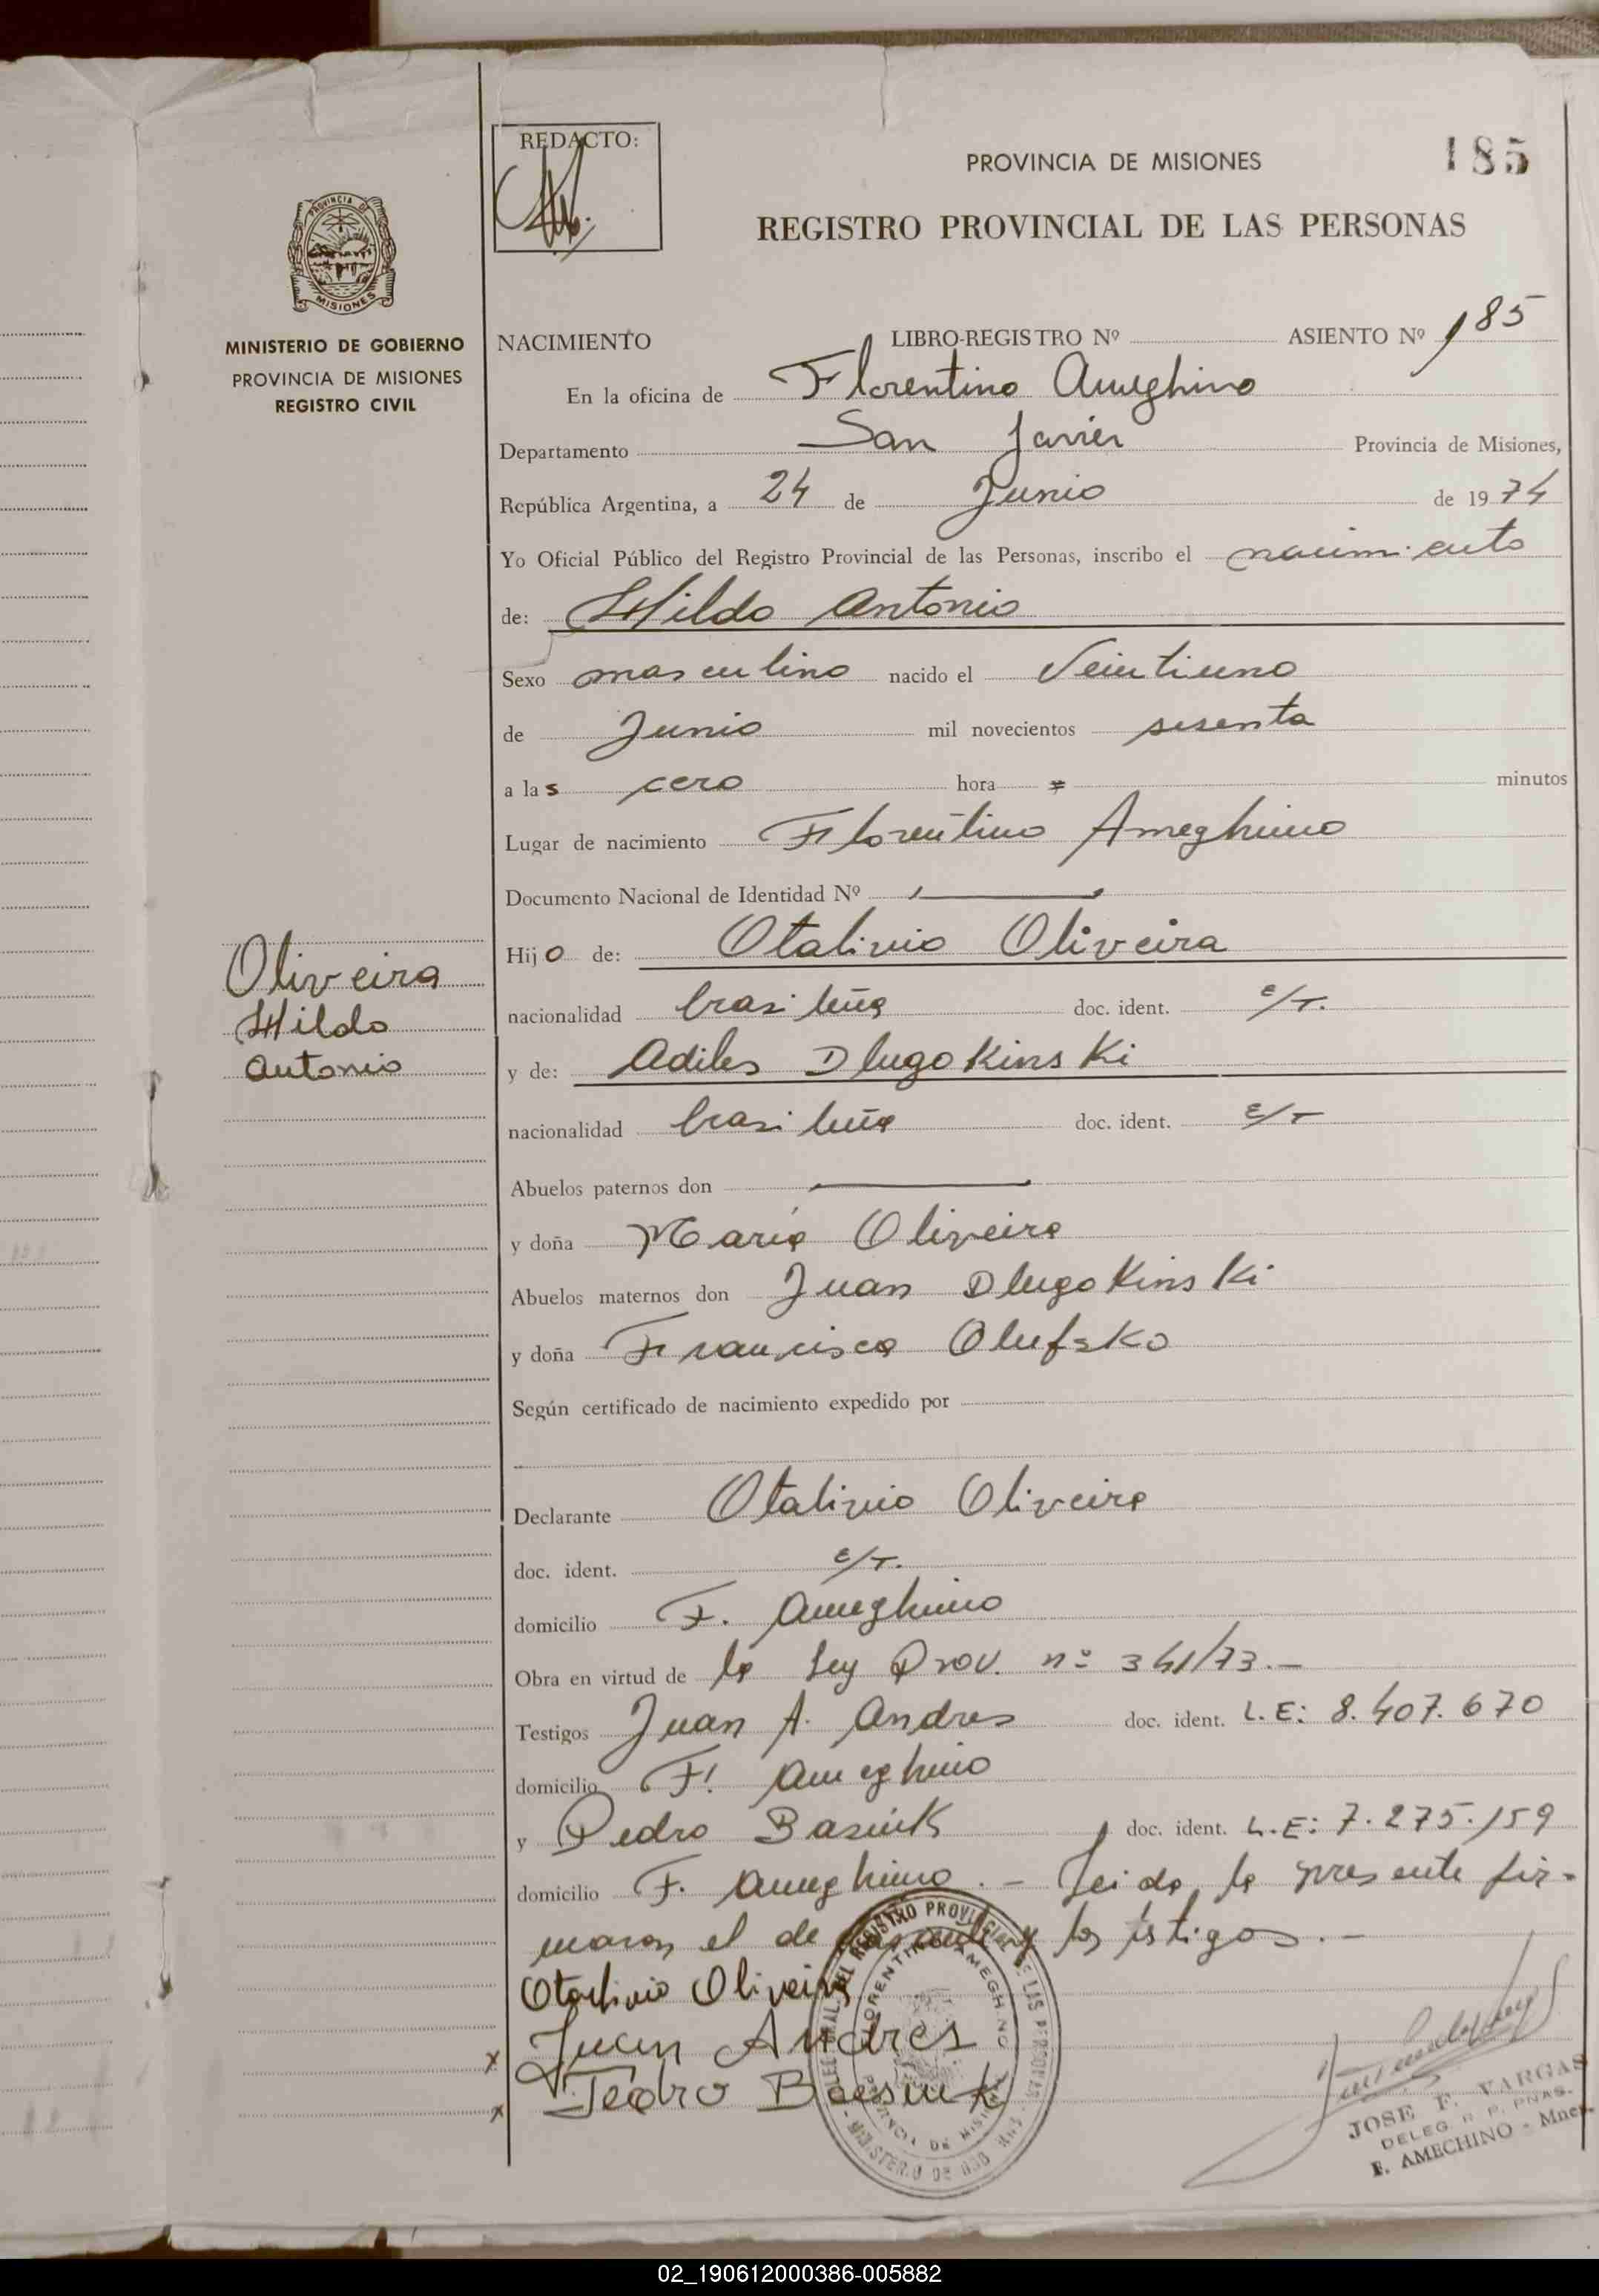 REDACTO:
PROVINCIA DE MISIONES
185
REGISTRO PROVINCIAL DE LAS PERSONAS
PROVINCIA DE
MISIONES
MINISTERIO DE GOBIERNO
PROVINCIA DE MISIONES
REGISTRO CIVIL
NACIMIENTO LIBRO-REGISTRO Nº ASIENTO Nº 185
En la oficina de Florentino Ameghino
Departamento San Javier Provincia de Misiones,
República Argentina, a 24 de Junio de 1974
Yo Oficial Público del Registro Provincial de las Personas, inscribo el nacimiento
de: Hildo Antonio
Sexo masculino nacido el Veintiuno
de Junio mil novecientos sesenta
a las cero hora = minutos
Lugar de nacimiento Florentino Ameghino
Documento Nacional de Identidad Nº
Hijo de: Otalivio Oliveira
nacionalidad brasileña doc. ident. c/T.
y de: Adiles DlugoKinsKi
nacionalidad brasileña doc. ident. c/T
Abuelos paternos don
y doña María Oliveira
Abuelos maternos don Juan DlugoKinsKi
y doña Francisca OlufsKo
Según certificado de nacimiento expedido por
Declarante Otalivio Oliveira
doc. ident. c/T.
domicilio F. Ameghino
Obra en virtud de la Ley Prov. nº 341/73.-
Testigos Juan A. Andres doc. ident. L.E: 8.407.670
domicilio F. Ameghino
y Pedro BasiuK doc. ident. L.E: 7.275.159
domicilio F. Ameghino.- Leida la presente fir-
maron el declarante y los testigos.-
Oliveira
Hildo
Antonio
Otalivio Oliveira
x Juan Andres
x Pedro Basiuk
REGISTRO PROVINCIAL DE LAS PERSONAS
FLORENTINO AMEGHINO
PROVINCIA DE MISIONES
MINISTERIO DE GOB
JOSE F. VARGAS
DELEG. R. P. PNAS.
F. AMECHINO - Mnes.
02_190612000386-005882